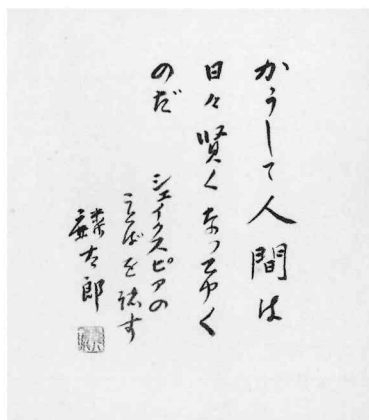 かうして人間は
日々賢くなってゆく
のだ
シェイクスピアの
ことばを誌す
麟太郎